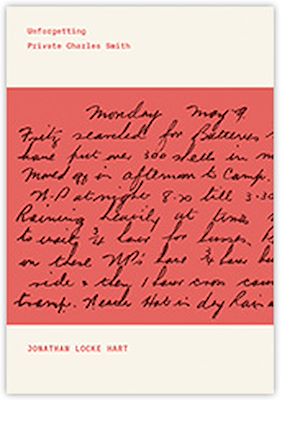 Unforgetting
Private Charles Smith
Monday May 9.
Fritz searched for Batteries
have put over 300 shells in
Moved off in afternoon to Camp.
N.P at night 8-30 till 3-30
Raining heavily at times
to wait ¾ hour for buses.
on these NP's have ¾ hour
ride & they 1 hour
tramp. Reach Hut in day Rain
JONATHAN LOCKE HART